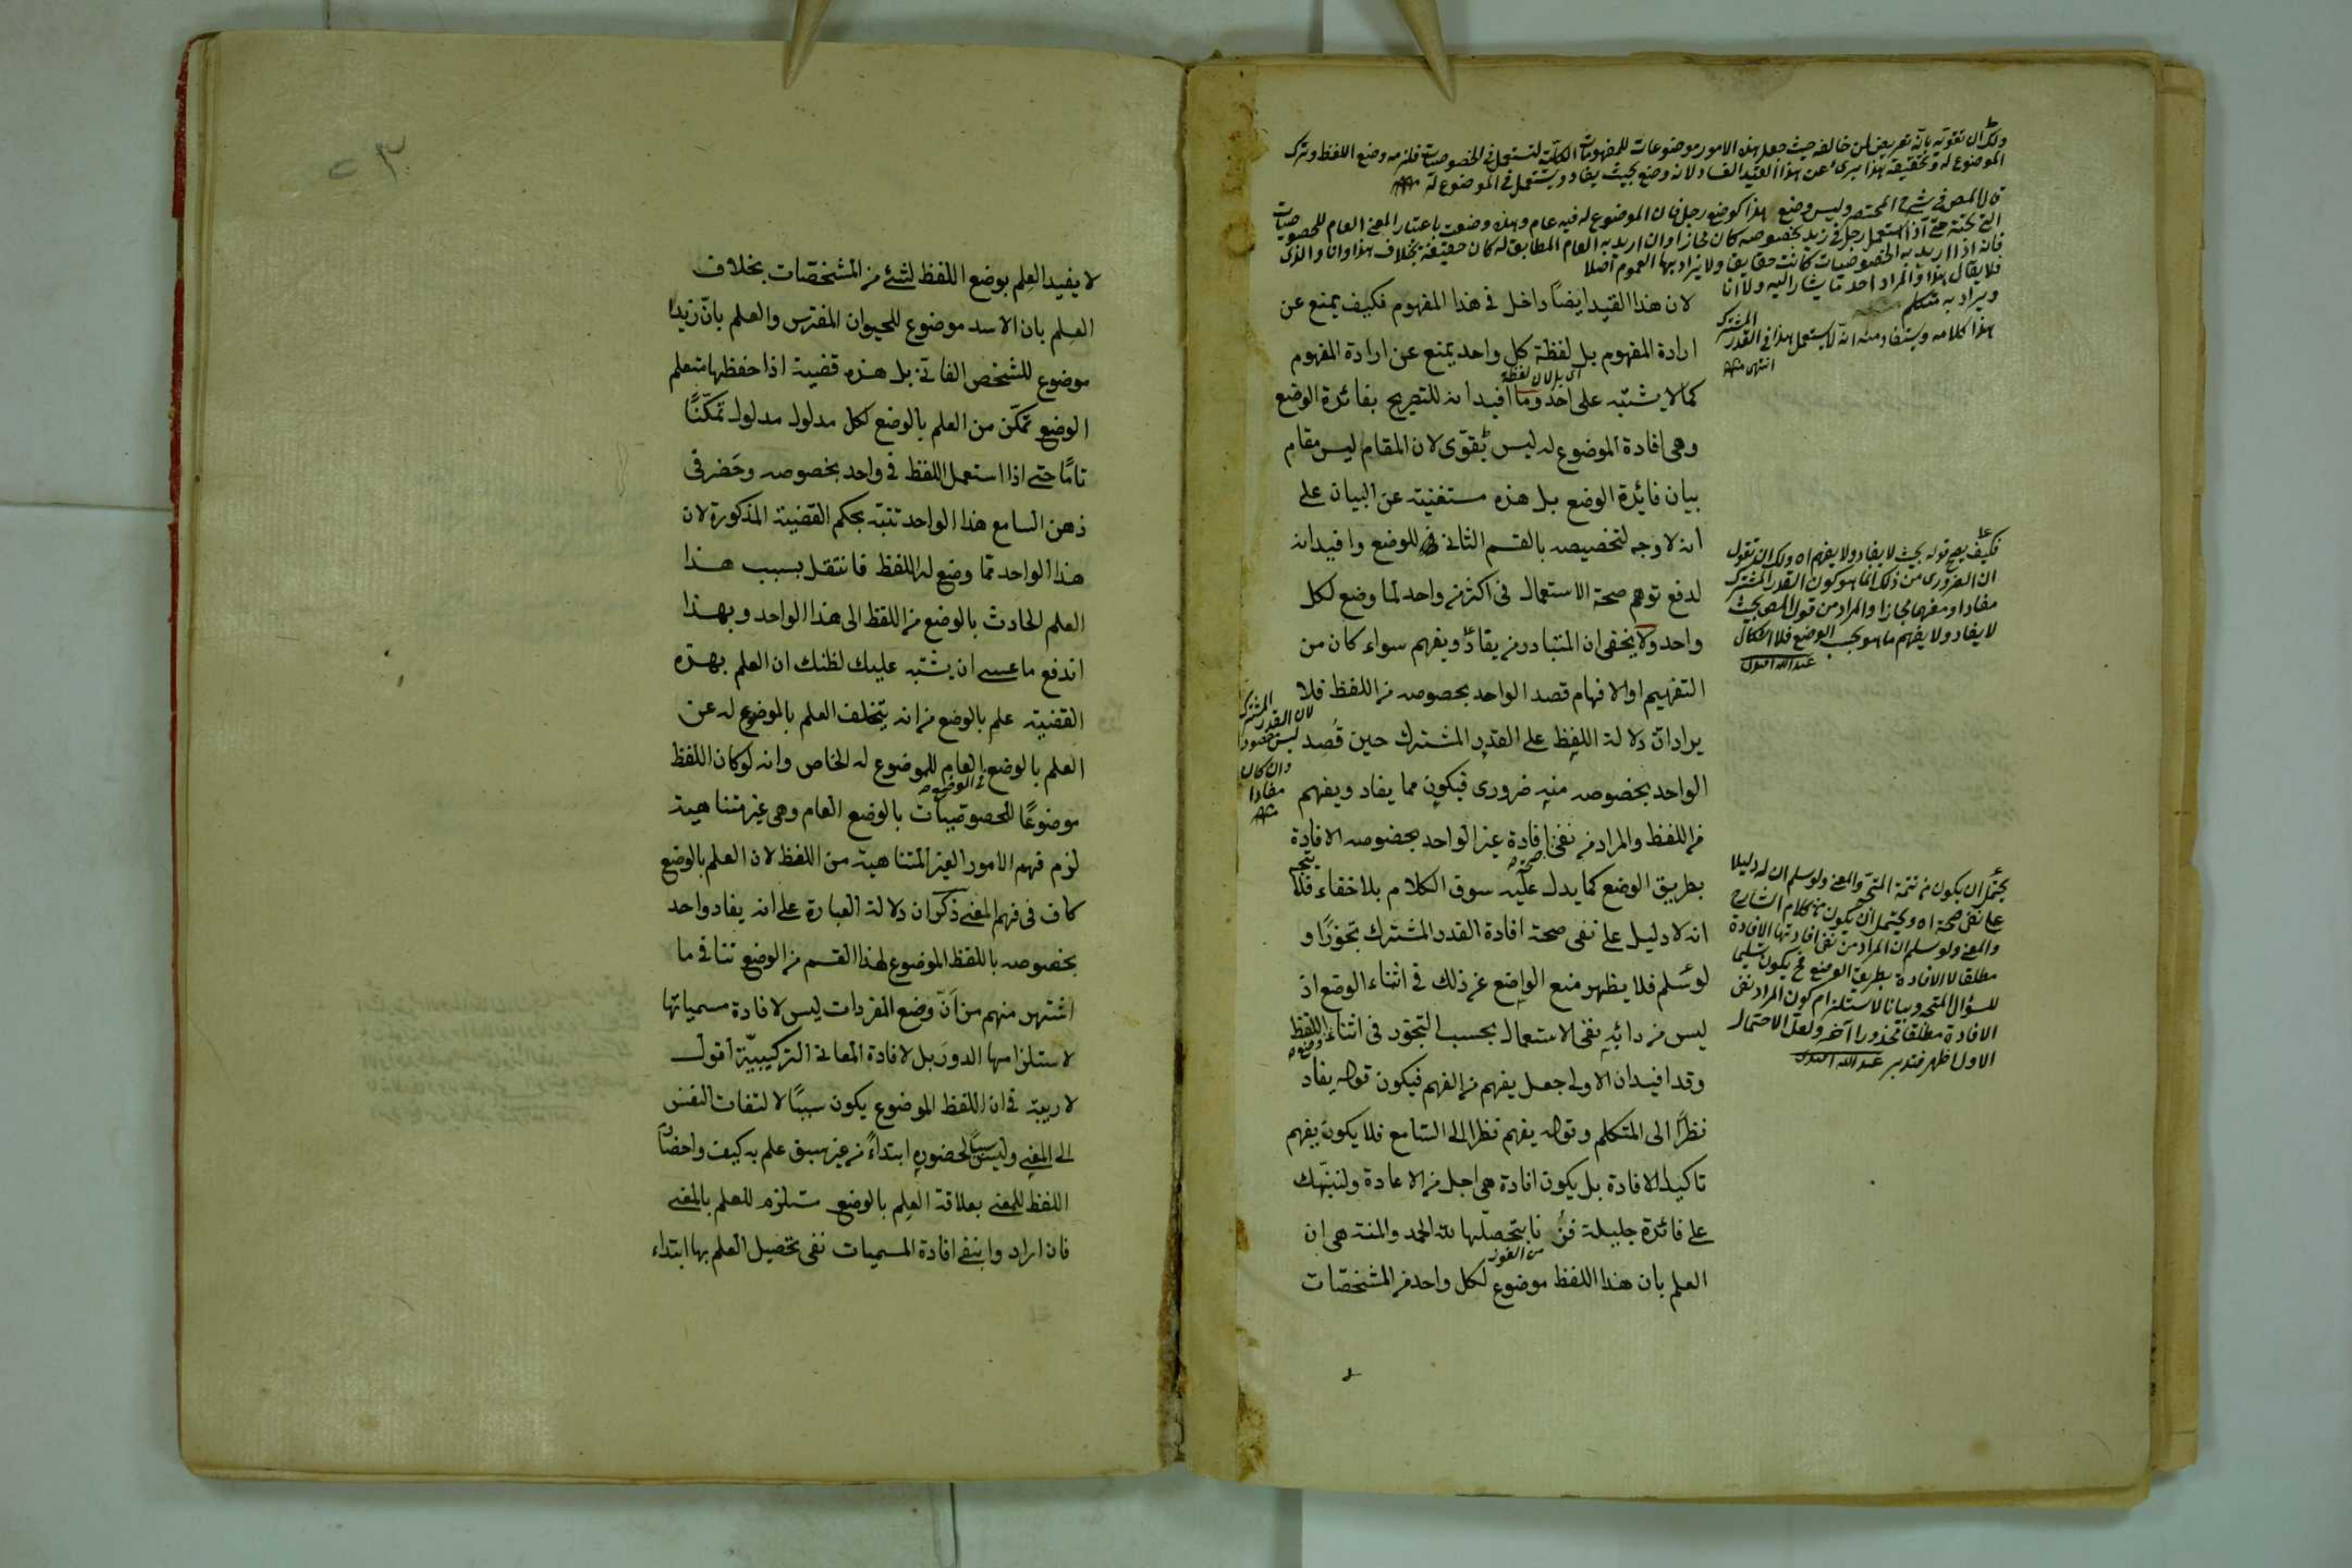 ولك ان تقويه بانه تعريض لمن خالفه حيث جعل هذه الامور موضوعات للمفهومات الكلية لتستعمل فى الخصوصيات فلزمه وضع اللفظ وترك
الموضوع له وتحقيقه هذا برئ عن هذا القيد الفساد لانه وضع بحيث يفاد ويستعمل فى الموضوع له
قال المص فى شرح المختصر وليس وضع هذا كوضع رجل فان الموضوع له فيه عام وهذه وضعت باعتبار المعنى العام للخصوصيات
التى تحته حتى اذا استعمل رجل فى زيد بخصوصه كان مجازا وان اريد به العام المطابق له كان حقيقة بخلاف هذا وانا والذى
فانه اذا اريد به الخصوصيات كانت حقايق ولا يراد بها العموم اصلا
فلا يقال هذا والمراد احد مما يشار اليه ولا انا
ويراد به متكلم
هذا كلامه ويستفاد منه انه لا يستعمل هذا فى القدر المشترك
انتهى منه
لان هذا القيد ايضا داخل فى هذا المفهوم فكيف يمنع عن
ارادة المفهوم بل لفظة كل واحد يمنع عن ارادة المفهوم
اى بل لان لفظة
كما لا يشتبه على احد وما افيد انه للتصريح بفائدة الوضع
وهى افادة الموضوع له ليس بقوى لان المقام ليس مقام
بيان فائدة الوضع بل هذه مستغنية عن البيان على
انه لا وجه لتخصيصه بالقسم الثانى للوضع وافيد انه
لدفع توهم صحة الاستعمال فى اكثر من واحد لما وضع لكل
واحد ولا يخفى ان المتبادر من يفاد ويفهم سواء كان من
التفهيم او الافهام قصد الواحد بخصوصه من اللفظ فلا
يراد ان دلالة اللفظ على القدر المشترك حين قصد
الواحد بخصوصه منه ضرورى فيكون مما يفاد ويفهم
من اللفظ والمراد من نفى افادة غير الواحد بخصوصه الافادة
بطريق الوضع كما يدل عليه سوق الكلام بلا خفاء فلا يتجه
انه لا دليل على نفى صحة افادة القدر المشترك تجوزا و
لو سلم فلا يظهر منع الواضع عن ذلك فى اثناء الوضع اذ
ليس من دابه نفى الاستعمال بحسب التجوز فى اثناء وضع اللفظ
وقد افيد ان الاولى جعل يفهم من الفهم فيكون قوله يفاد
نظرا الى المتكلم وقوله يفهم نظرا الى السامع فلا يكون يفهم
تاكيدا لافادة بل يكون افادة هى اجل من الاعادة ولننبهك
على فائدة جليلة فزنا بتحصيلها لله الحمد والمنة هى ان
من الفوز
العلم بان هذا اللفظ موضوع لكل واحد من المشخصات
لان القدر المشترك
ليس مقصودا
وان كان
مفادا
منه
فكيف يصح قوله بحيث لا يفاد ولا يفهم اه ولك ان تقول
ان الضرورى من ذلك انما هو كون القدر المشترك
مفادا ومفهما مجازا والمراد من قول المص بحيث
لا يفاد ولا يفهم ما هو بحسب الوضع فلا اشكال
عبد الله
يحتمل ان يكون من تتمة المتجه والمعنى ولو سلم ان له دليلا
على نفى صحة اه ويحتمل ان يكون من كلام الشارح
والمعنى ولو سلم ان المراد من نفى افادتها الافادة
مطلقا لا الافادة بطريق الوضع فح يكون تسليما
للسؤال المتجه وبيانا لاستلزام كون المراد نفى
الافادة مطلقا محذورا آخر ولعل الاحتمال
الاول اظهر فتدبر عبد الله
لا يفيد العلم بوضع اللفظ لشئ من المشخصات بخلاف
العلم بان الاسد موضوع للحيوان المفترس والعلم بان زيدا
موضوع للشخص الفانى بل هذه قضية اذا حفظها متعلم
الوضع تمكن من العلم بالوضع لكل مدلول مدلول تمكنا
تاما حتى اذا استعمل اللفظ فى واحد بخصوصه وحضر فى
ذهن السامع هذا الواحد تنبه بحكم القضية المذكورة لان
هذا الواحد مما وضع له اللفظ فانتقل بسبب هذا
العلم الحادث بالوضع من اللفظ الى هذا الواحد وبهذا
اندفع ما عسى ان يشتبه عليك لظنك ان العلم بهذه
القضية علم بالوضع من انه يتخلف العلم بالموضوع له عن
العلم بالوضع العام للموضوع له الخاص وانه لو كان اللفظ
موضوعا للخصوصيات بالوضع العام وهى غير متناهية
لزم فهم الامور الغير المتناهية من اللفظ لان العلم بالوضع
كاف فى فهم المعنى ذكر ان دلالة العبارة على انه يفاد واحد
بخصوصه باللفظ الموضوع لهذا القسم من الوضع تنافى ما
اشتهر منهم من ان وضع المفردات ليس لافادة مسمياتها
لاستلزامها الدور بل لافادة المعانى التركيبية اقول
لا ريبة فى ان اللفظ الموضوع يكون سببا لالتفات النفس
الى المعنى وليس سببا لحضوره ابتداء من غير سبق علم به كيف واحضار
اللفظ للمعنى بعلاقة العلم بالوضع ستلزم للعلم بالمعنى
فان ارادوا بنفى افادة المسميات نفى تحصيل العلم بها ابتداء